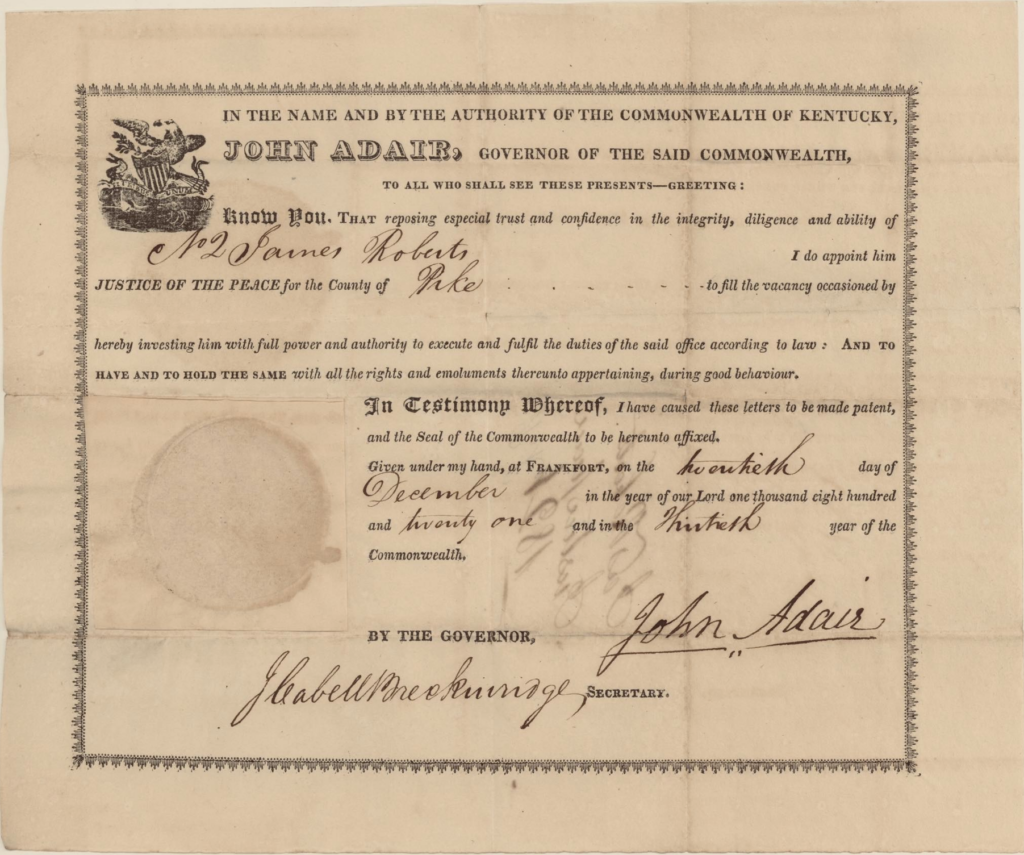 IN THE NAME AND BY THE AUTHORITY OF THE COMMONWEALTH OF KENTUCKY,
JOHN ADAIR, GOVERNOR OF THE SAID COMMONWEALTH,
TO ALL WHO SHALL SEE THESE PRESENTS—GREETING:
Know You. THAT reposing especial trust and confidence in the integrity, diligence and ability of
No 2 James Roberts I do appoint him
JUSTICE OF THE PEACE for the County of Pike . - - - - - - to fill the vacancy occasioned by
hereby investing him with full power and authority to execute and fulfil the duties of the said office according to law: AND TO
HAVE AND TO HOLD THE SAME with all the rights and emoluments thereunto appertaining, during good behaviour.
In Testimony Whereof, I have caused these letters to be made patent,
and the Seal of the Commonwealth to be hereunto affixed.
Given under my hand, at FRANKFORT, on the twentieth day of
December in the year of our Lord one thousand eight hundred
and twenty one and in the Thirtieth year of the
Commonwealth.
John Adair
BY THE GOVERNOR,
J Cabell Breckinridge, SECRETARY.